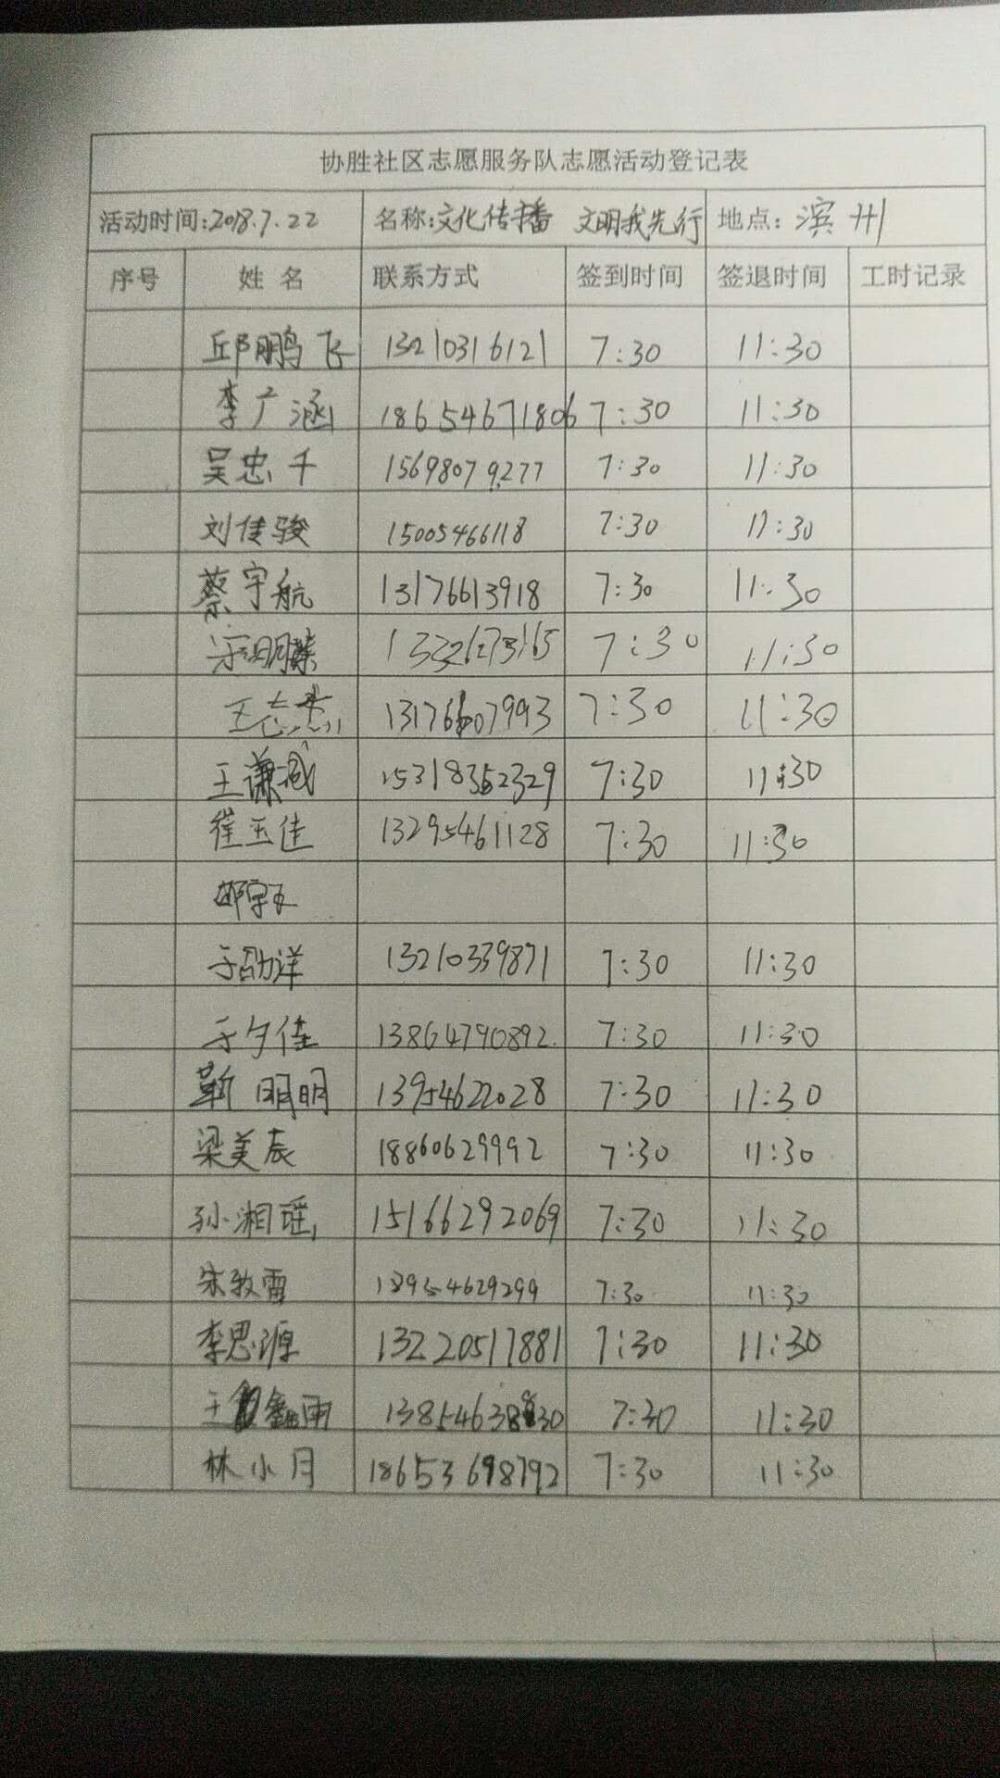 协胜社区志愿服务队志愿活动登记表
活动时间:2018.7.22 名称:文化传播 文明我先行 地点:滨州
序号 姓名 联系方式 签到时间 签退时间 工时记录
邱鹏飞 13210316121 7:30 11:30
李广涵 18654671806 7:30 11:30
吴忠千 15698079277 7:30 11:30
刘佳骏 15005466118 7:30 11:30
蔡宇航 13176613918 7:30 11:30
7:30 11:30
王志杰 13176607993 7:30 11:30
王谦诚 15318352329 7:30 11:30
崔玉佳 13295461128 7:30 11:30
于劭洋 13210339871 7:30 11:30
于夕佳 13864790892 7:30 11:30
靳明明 13954622028 7:30 11:30
梁美辰 18860629992 7:30 11:30
孙湘瑶 15166292069 7:30 11:30
宋敦雷 13954629299 7:30 11:30
李思源 13220517881 7:30 11:30
王鑫雨 7:30 11:30
林小月 18653698792 7:30 11:30